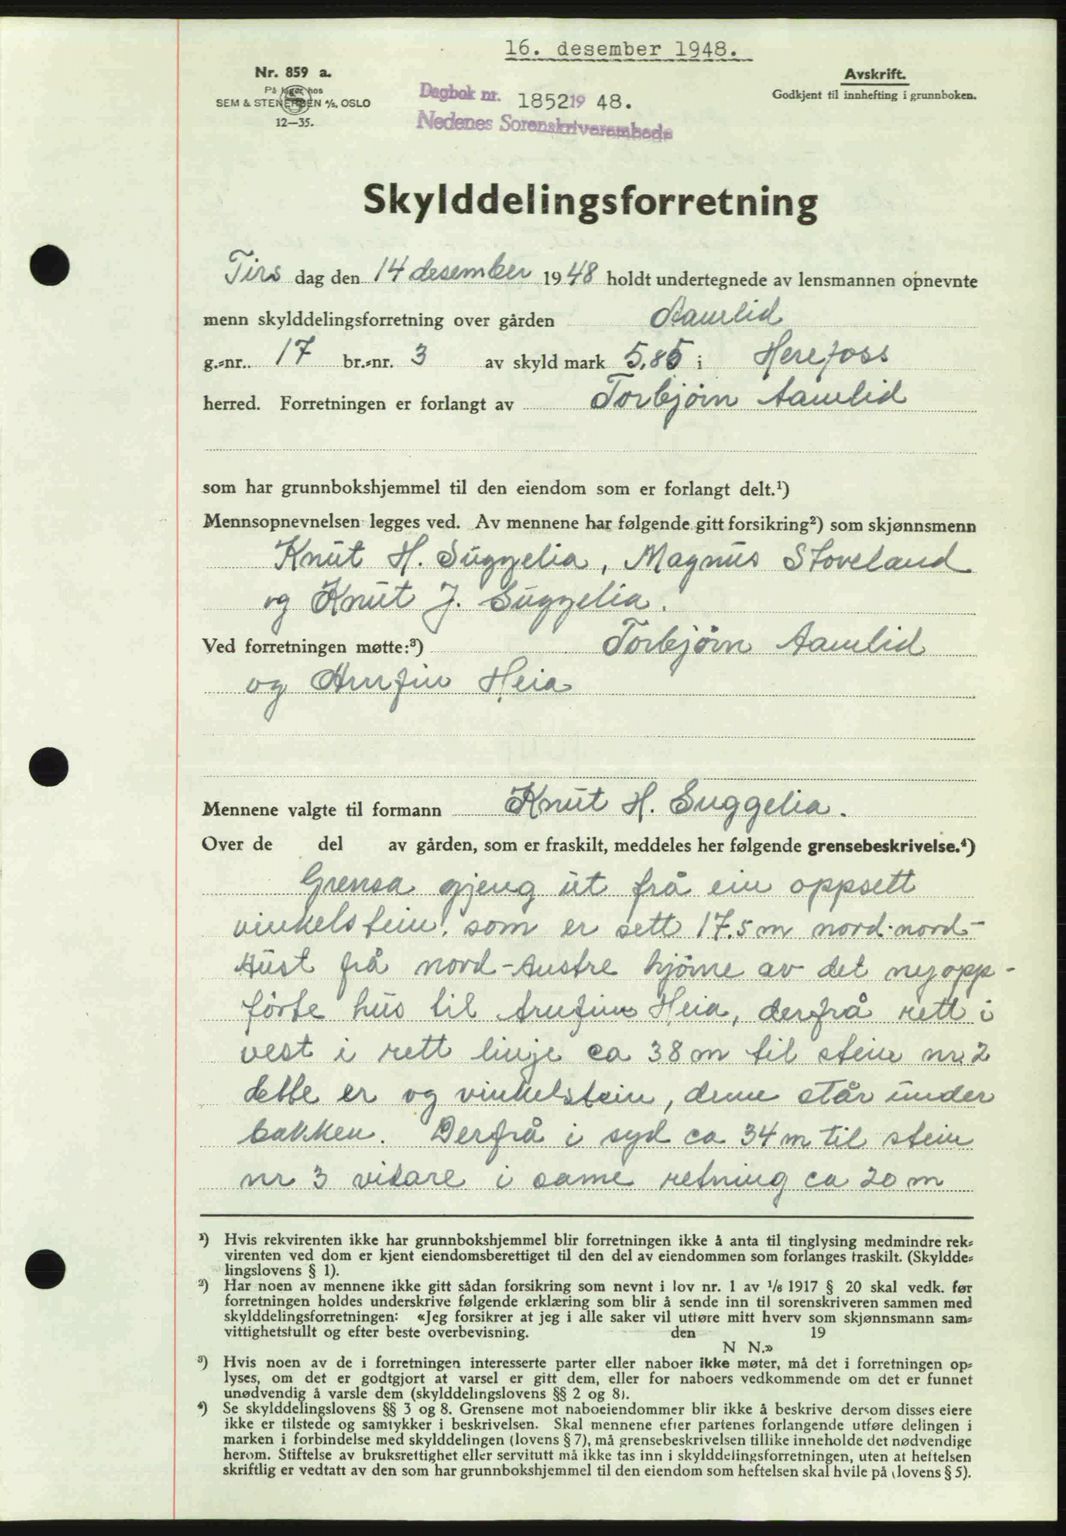 16. desember 1948.
Nr. 859 a.
På lager hos
SEM & STENERSEN A/S, OSLO
12—35.
Dagbok nr. 1852 19 48.
Nedenes Sorenskriverembede
Avskrift.
Godkjent til innhefting i grunnboken.
Skylddelingsforretning
Tirs dag den 14 desember 1948 holdt undertegnede av lensmannen opnevnte
menn skylddelingsforretning over gården Aamlid
g.-nr. 17 br.-nr. 3 av skyld mark 5,85 i Herefoss
herred. Forretningen er forlangt av Torbjörn Aamlid
som har grunnbokshjemmel til den eiendom som er forlangt delt.¹)
Mennsopnevnelsen legges ved. Av mennene har følgende gitt forsikring²) som skjønnsmenn
Knut H. Suggelia, Magnus Stoveland
og Knut J. Suggelia.
Ved forretningen møtte:³) Torbjörn Aamlid
og Arnfin Heia
Mennene valgte til formann Knut H. Suggelia.
Over de del av gården, som er fraskilt, meddeles her følgende grensebeskrivelse.⁴)
Grensa gjeng ut frå ein oppsett
vinkelstein, som er sett 17.5 m nord-nord-
aust frå nord-austre hjörne av det nyopp-
förte hus til Arnfin Heia, derfrå rett i
vest i rett linje ca 38 m til stein nr. 2
dette er og vinkelstein, denne står under
bakken. Derfrå i syd ca 34 m til stein
nr 3 vidare i same retning ca 20 m
¹) Hvis rekvirenten ikke har grunnbokshjemmel blir forretningen ikke å anta til tinglysing medmindre rek-
virenten ved dom er kjent eiendomsberettiget til den del av eiendommen som forlanges fraskilt. (Skyldde-
lingslovens § 1).
²) Har noen av mennene ikke gitt sådan forsikring som nevnt i lov nr. 1 av 1/6 1917 § 20 skal vedk. før
forretningen holdes underskrive følgende erklæring som blir å sende inn til sorenskriveren sammen med
skylddelingsforretningen: «Jeg forsikrer at jeg i alle saker vil utføre mitt hverv som skjønnsmann sam-
vittighetsfullt og efter beste overbevisning. den 19
N N.»
³) Hvis noen av de i forretningen interesserte parter eller naboer ikke møter, må det i forretningen op-
lyses, om det er godtgjort at varsel er gitt dem, eller for naboers vedkommende om det er funnet
unødvendig å varsle dem (skylddelingslovens §§ 2 og 8).
⁴) Se skylddelingslovens §§ 3 og 8. Grensene mot naboeiendommer blir ikke å beskrive dersom disses eiere
ikke er tilstede og samtykker i beskrivelsen. Skal mennene efter partenes forlangende utføre delingen i
marken i forbindelse med skylddelingen (lovens § 7), må grensebeskrivelsen tillike inneholde det nødvendige
herom. Stiftelse av bruksrettighet eller servitutt må ikke tas inn i skylddelingsforretningen, uten at heftelsen
skriftlig er vedtatt av den som har grunnbokshjemmel til den eiendom som heftelsen skal hvile på (lovens § 5).